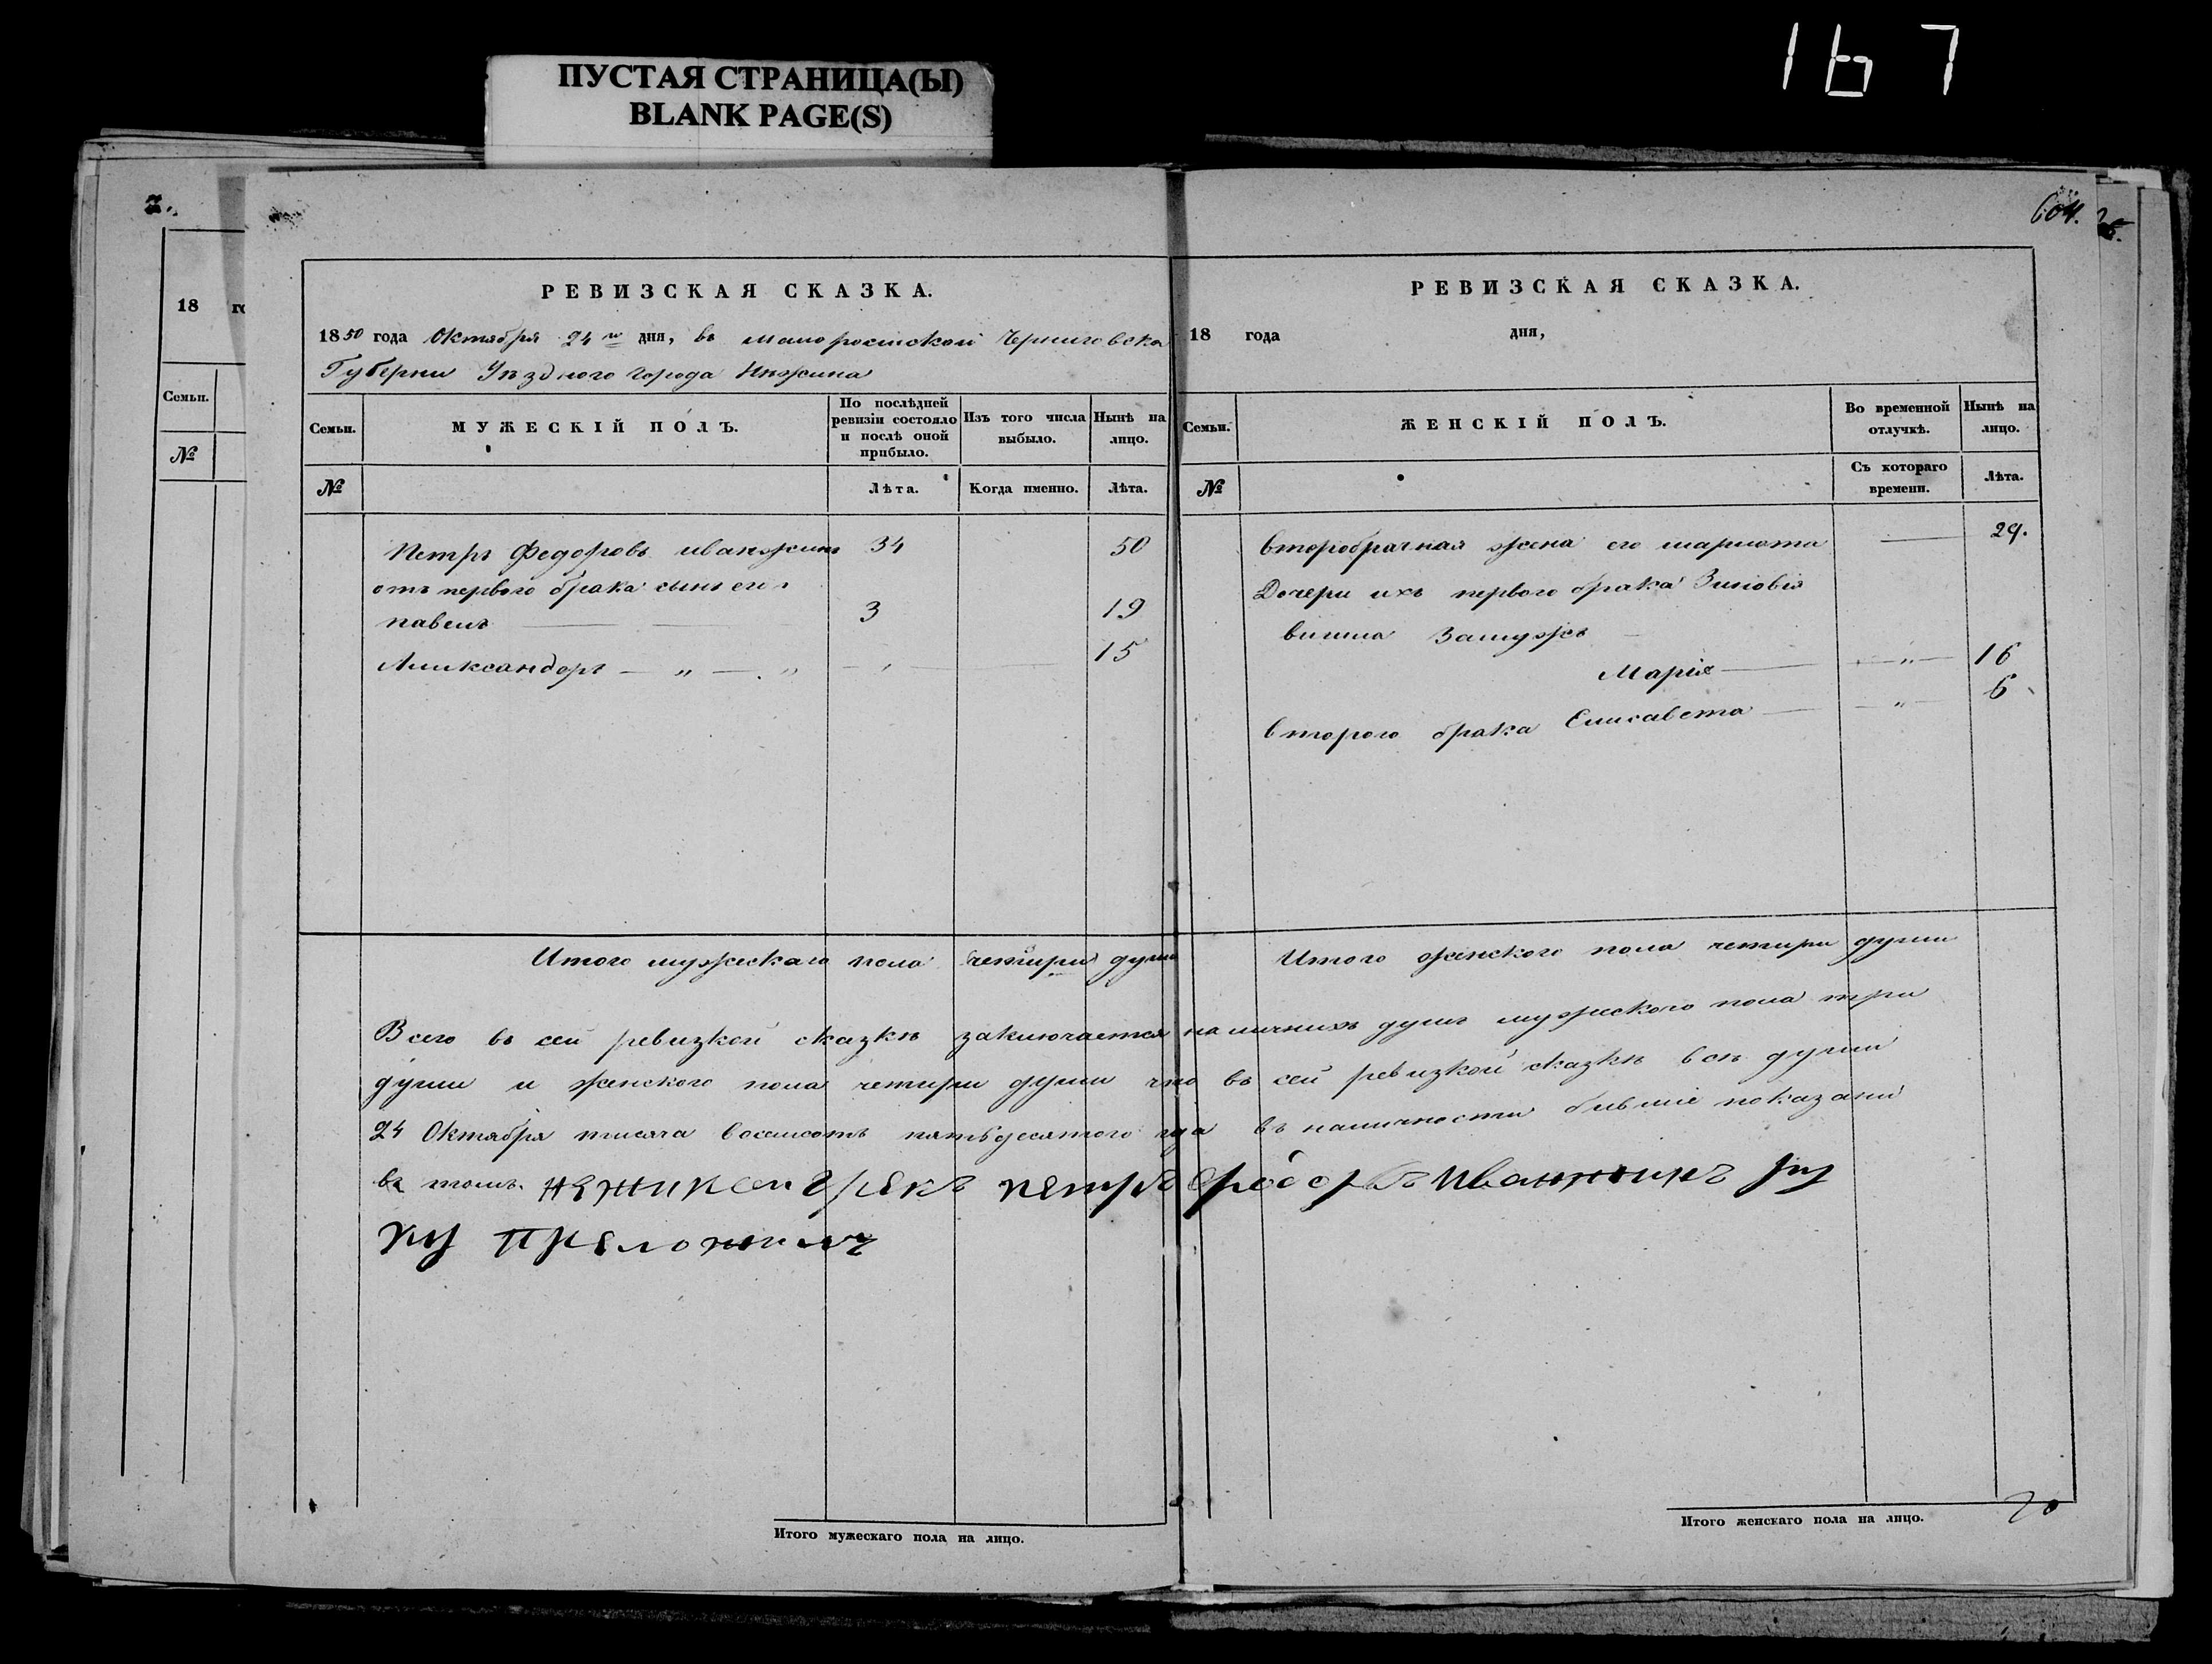 ПУСТАЯ СТРАНИЦА(Ы)
BLANK PAGE(S)
167
604.
18 го
Семьи.
№
РЕВИЗСКАЯ СКАЗКА.
1850 года Октября 24го дня, въ малоросийской Черниговско
Губерни Уѣздного города Нѣжина
Семьи.
МУЖЕСКІЙ ПОЛЪ.
По послѣдней ревизіи состояло и послѣ оной прибыло.
Изъ того числа выбыло.
Нынѣ на лицо.
№
Лѣта.
Когда именно.
Лѣта.
Петръ Федоровъ иванжинъ 34 50
отъ первого брака сынъ его
павелъ 3 19
Аликсандоръ — „ — „ 15
РЕВИЗСКАЯ СКАЗКА.
18 года дня,
Семьи.
ЖЕНСКІЙ ПОЛЪ.
Во временной отлучкѣ.
Нынѣ на лицо.
№
Съ котораго времени.
Лѣта.
второбрачная жена его шарлота — 29.
Дочери ихъ первого брака Зиновія
вишла Замужъ
Марія — „ — 16
второго брака Елисавета — „ — 6
Итого мужескаго пола четири души
Итого женского пола четири души
Всего въ сей ревизкой сказкѣ заключается наличнихъ душъ мужеского пола три
души и женского пола четири души что въ сей ревизкой сказкѣ всѣ души
24 Октября тисяча восемсотъ пятьдесятого года въ наличности бившіе показани
въ томъ нежинсеи грекъ петръ Федоровъ Иванжинъ ру
ку приложилъ
Итого мужескаго пола на лицо.
Итого женскаго пола на лицо.